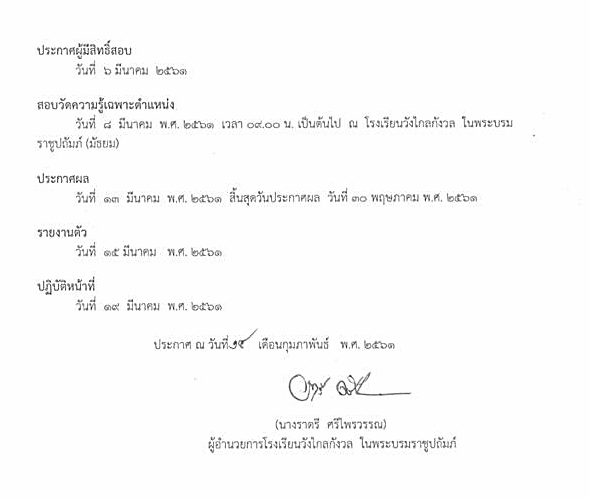 ประกาศผู้มีสิทธิ์สอบ
วันที่ ๖ มีนาคม ๒๕๖๑
สอบวัดความรู้เฉพาะตำแหน่ง
วันที่ ๘ มีนาคม พ.ศ. ๒๕๖๑ เวลา ๐๙.๐๐ น. เป็นต้นไป ณ โรงเรียนวังไกลกังวล ในพระบรม
ราชูปถัมภ์ (มัธยม)
ประกาศผล
วันที่ ๑๓ มีนาคม พ.ศ. ๒๕๖๑ สิ้นสุดวันประกาศผล วันที่ ๓๐ พฤษภาคม พ.ศ. ๒๕๖๑
รายงานตัว
วันที่ ๑๕ มีนาคม พ.ศ. ๒๕๖๑
ปฏิบัติหน้าที่
วันที่ ๑๙ มีนาคม พ.ศ. ๒๕๖๑
ประกาศ ณ วันที่ เดือนกุมภาพันธ์ พ.ศ. ๒๕๖๑
(นางราตรี ศรีไพรวรรณ)
ผู้อำนวยการโรงเรียนวังไกลกังวล ในพระบรมราชูปถัมภ์